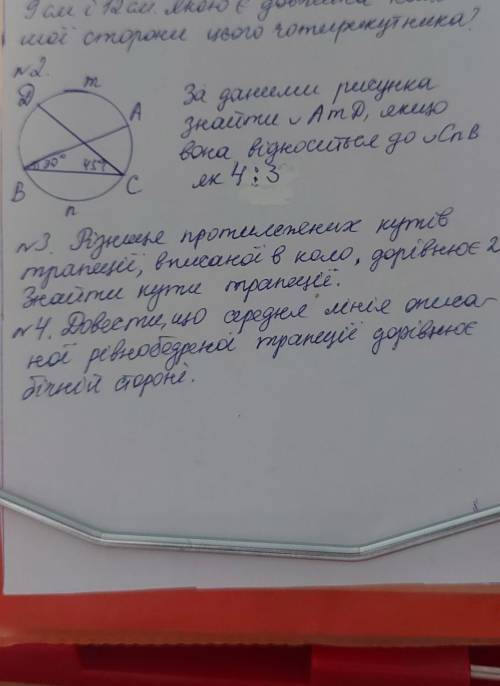 9 см і 12 см. якою є довжина
шої сторони цього чотирикутника?
№2.
m
D
A
20° 45°
B
C
n
За даними рисунка
знайти ◡AmD, якщо
вона відноситься до ◡CnB
як 4:3
№3. Різниця протилежних кутів
трапеції, вписаної в коло, дорівнює 2
Знайти кути трапеції.
№4. Довести, що середня лінія описа-
ної рівнобедреної трапеції дорівнює
бічній стороні.